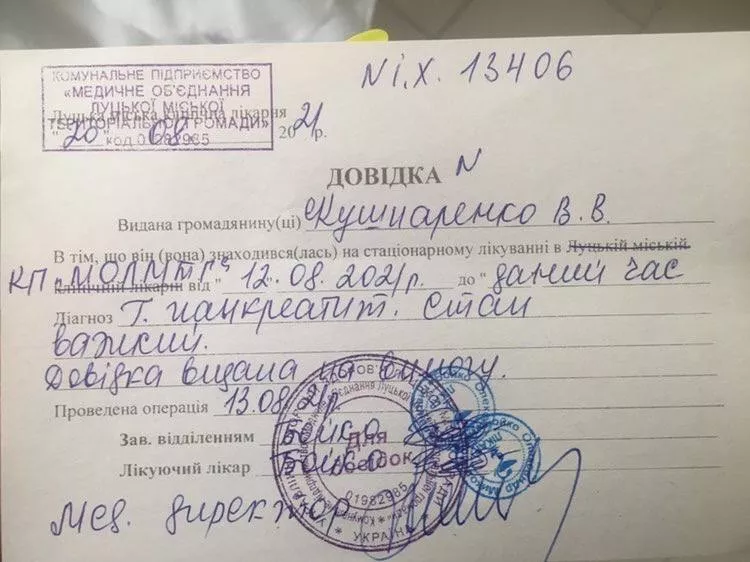 КОМУНАЛЬНЕ ПІДПРИЄМСТВО
«МЕДИЧНЕ ОБ'ЄДНАННЯ
ЛУЦЬКОЇ МІСЬКОЇ
ТЕРИТОРІАЛЬНОЇ ГРОМАДИ»
код 01982985
N i.х. 13406
Луцька міська клінічна лікарня
"20" 08. 2021р.
ДОВІДКА N
Видана громадянину(ці) Кушнаренко В. В.
В тім, що він (вона) знаходився(лась) на стаціонарному лікуванні в Луцькій міській
КП „МОЛМТГ"
клінічній лікарні від " 12.08.2021р. до " даний час
Діагноз Г. панкреатит. Стан
важкий.
Довідка видана на вимогу.
Проведена операція 13.08.21р
Зав. відділенням Бойко
Лікуючий лікар Бойко
Мед. директор
Для довідок
01982985
* УКРАЇНА *